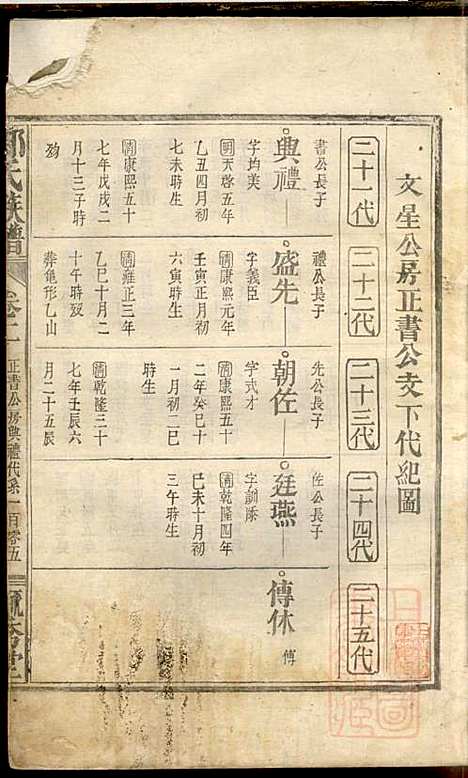 文星公房正書公支下代紀圖
二十一代
二十二代
二十三代
二十四代
二十五代
書公長子
興禮
字均美
明天啓五年
乙丑四月初
七未時生
清康熙五十
七年戊戌二
月十三子時
歿
禮公長子
盛先
字義臣
清康熙元年
壬寅正月初
六寅時生
清雍正三年
乙巳十月二
十午時歿
葬龜形乙山
先公長子
朝佐
字式才
清康熙五十
二年癸巳十
一月初二巳
時生
清乾隆三十
七年壬辰六
月二十五辰
佐公長子
廷燕
字訓
清乾隆四年
己未十月初
三午時生
傳休
傳
氏族譜
卷二
正書公房興禮代系
一百零五
堂